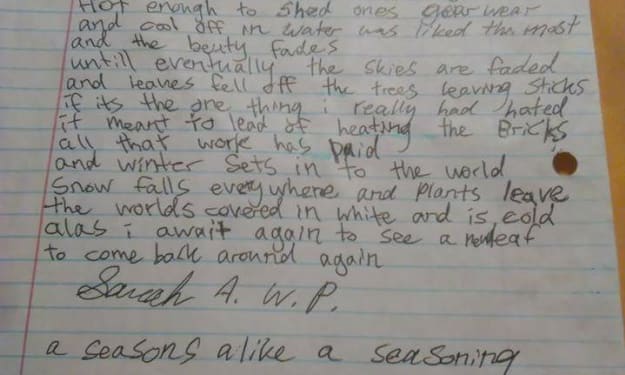 Hot enough to shed ones gear wear
and cool off in water was liked the most
and the beuty fades
untill eventually the skies are faded
and leaves fell off the trees leaving sticks
if its the one thing i really had hated
it meant to lead of heating the Bricks
all that work has paid
and winter sets in to the world
snow falls everywhere and plants leave
the worlds covered in white and is cold
alas i await again to see a new leaf
to come back around again
Sarah A. W. P.
a seasons alike a seasoning